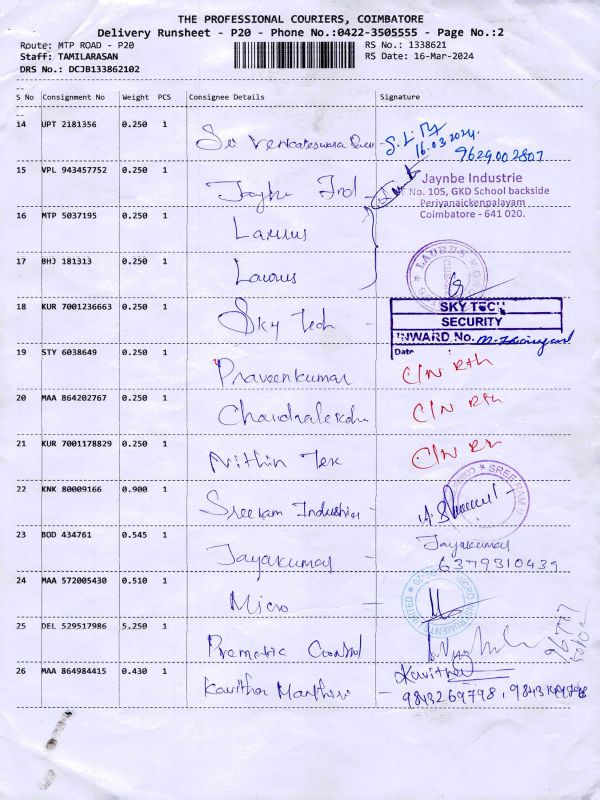 THE PROFESSIONAL COURIERS, COIMBATORE
Delivery Runsheet - P20 - Phone No.:0422-3505555 - Page No.:2
Route: MTP ROAD - P20 RS No.: 1338621
Staff: TAMILARASAN RS Date: 16-Mar-2024
DRS No.: DCJB133862102
S No Consignment No Weight PCS Consignee Details Signature
14 UPT 2181356 0.250 1 Sri Venkateswara
16.03.2024.
9629002807
15 VPL 943457752 0.250 1 Ind
Jaynbe Industrie
No. 105, GKD School backside
Periyanaickenpalayam
Coimbatore - 641 020.
16 MTP 5037195 0.250 1 Laurus
17 BHJ 181313 0.250 1 Laurus
LAURUS
18 KUR 7001236663 0.250 1 Sky Tech
SKY TECH
SECURITY
INWARD No.
Date
19 STY 6038649 0.250 1 Praveenkumar C/N Rth
20 MAA 864202767 0.250 1 C/N Rth
21 KUR 7001178829 0.250 1 Nithin Tex C/N
22 KNK 80009166 0.900 1 Sreeram Industries
SREE RAM
23 BOD 434761 0.545 1 Jayakumar Jayakumar
6379310439
24 MAA 572005430 0.510 1 Micro
25 DEL 529517986 5.250 1 Control
26 MAA 864984415 0.430 1 Kavitha Kavitha
9843269798,